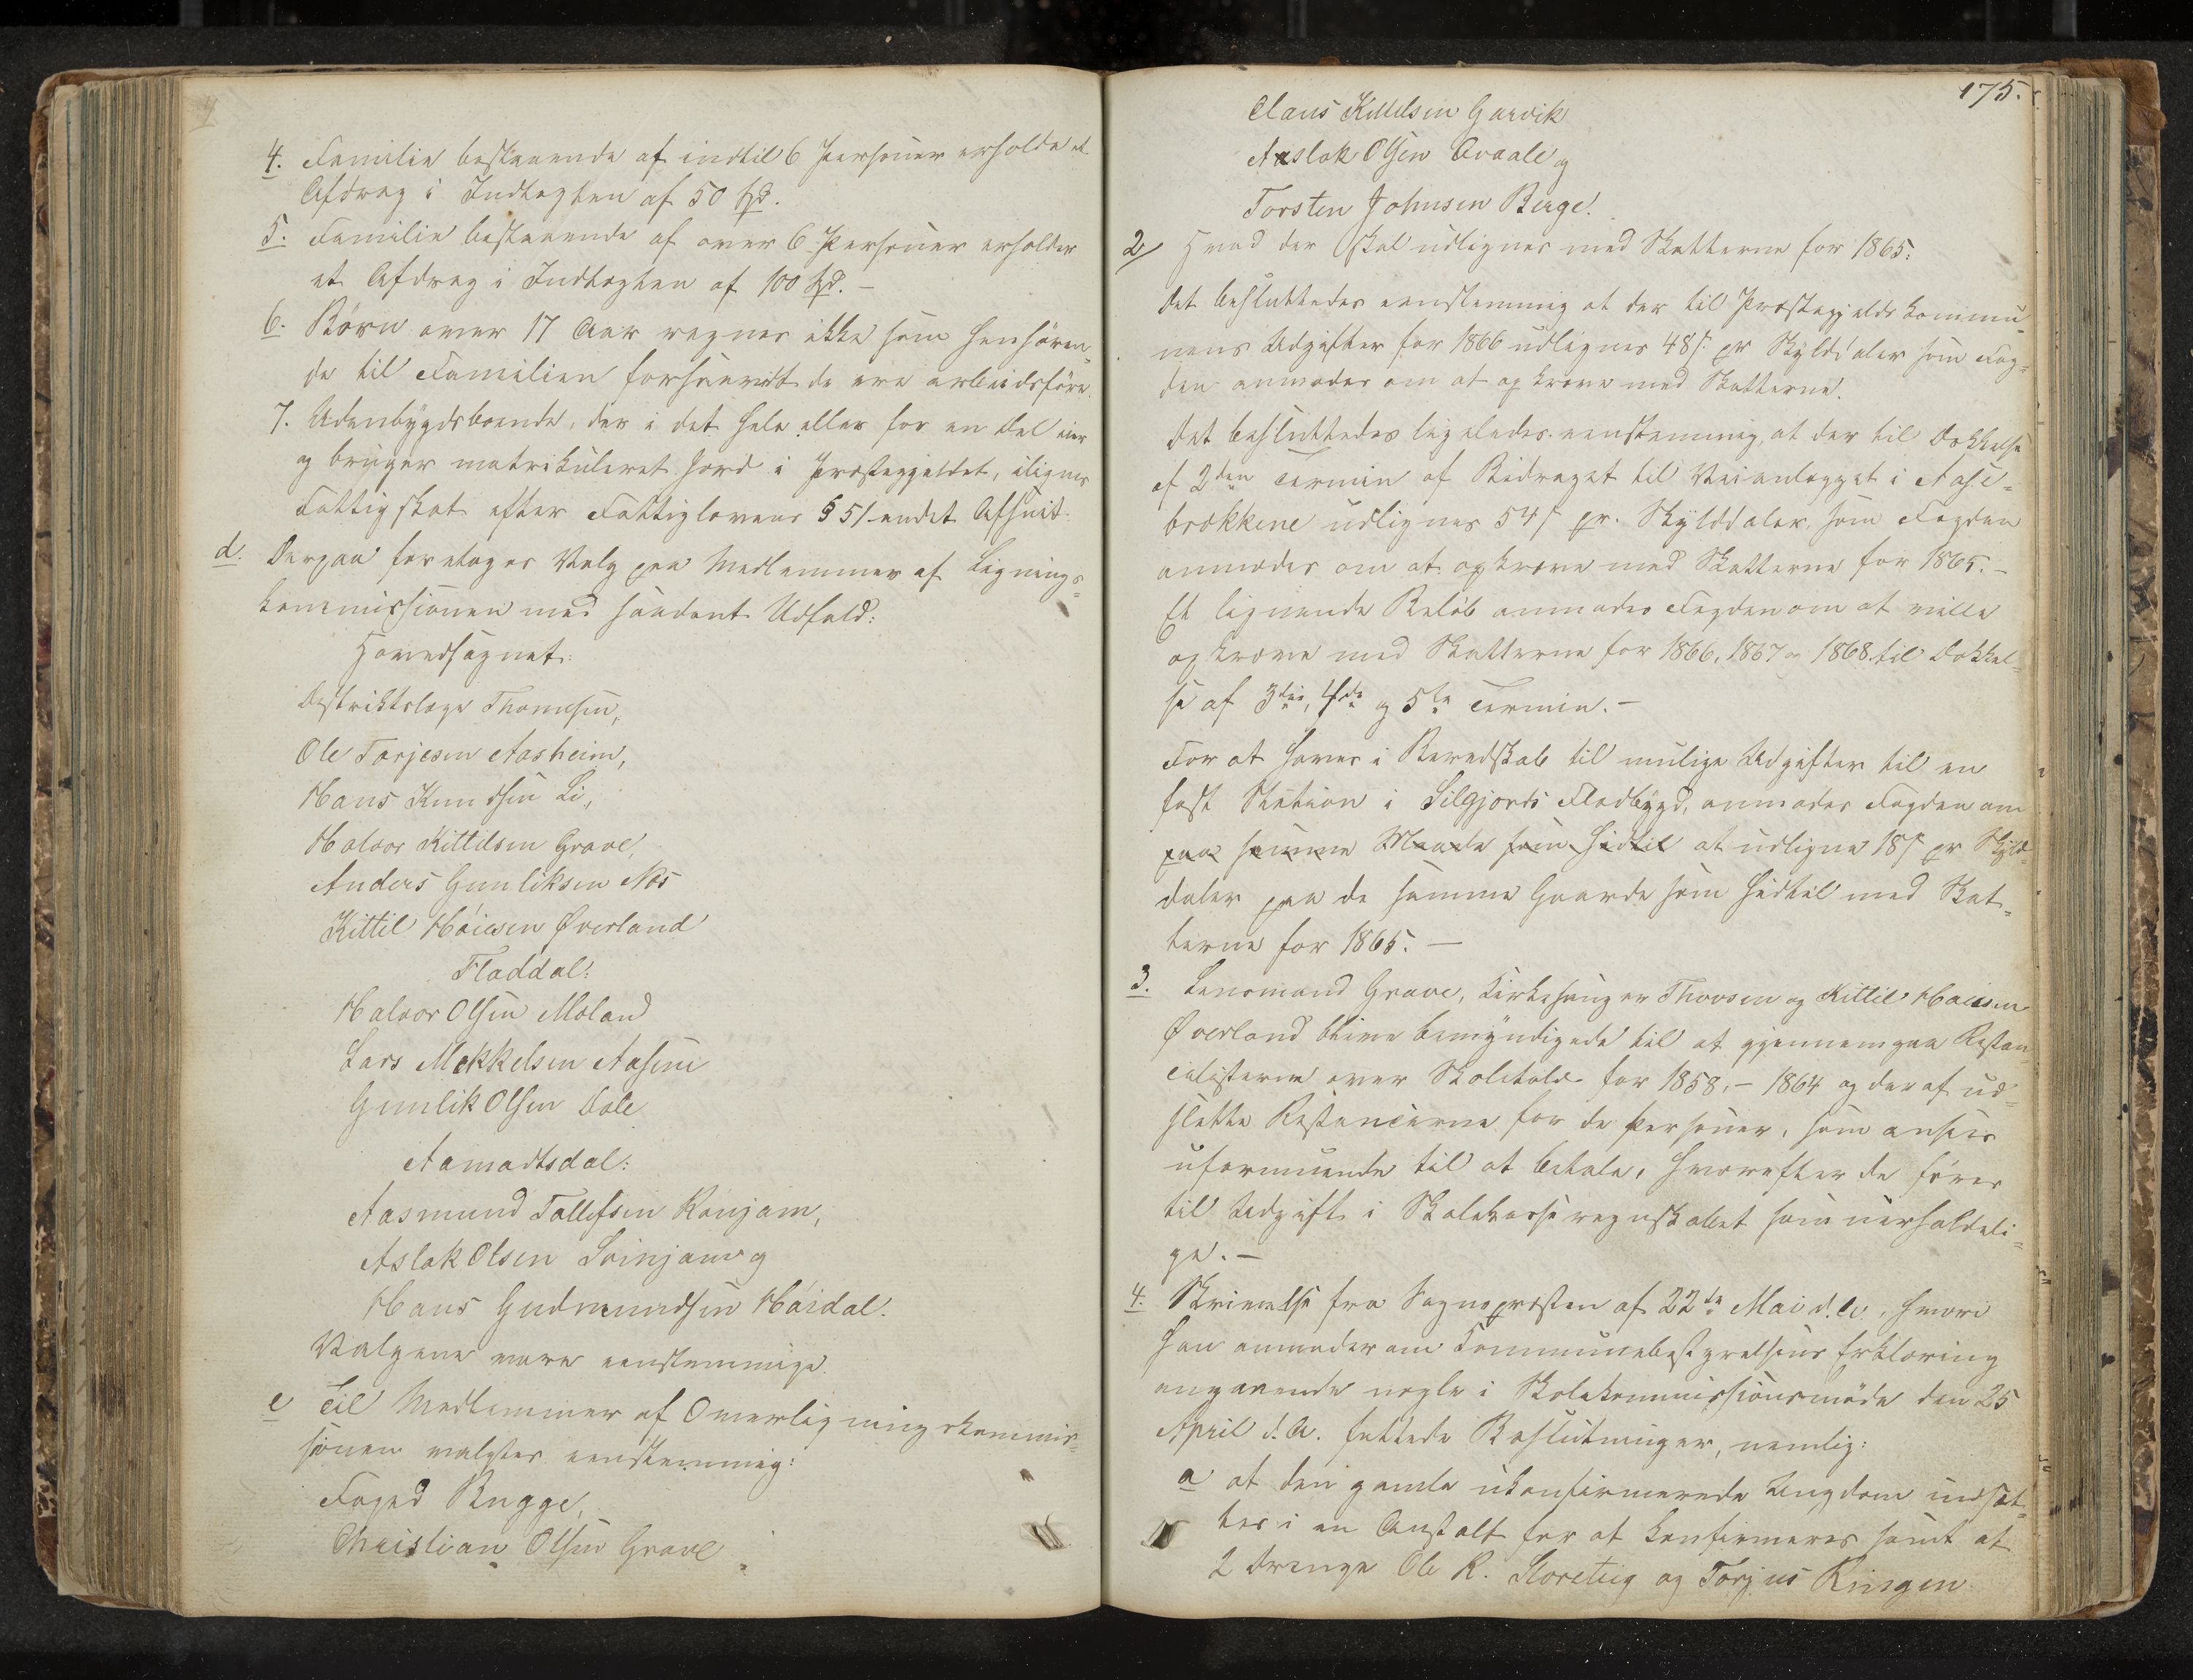 4. Familie bestaaende af indtil 6 Personer erholde et
Afdrag i Indtægten af 50 Spd.
5. Familie bestaaende af over 6 Personer erholder
et Afdrag i Indtægten af 100 Spd. –
6. Börn over 17 Aar regnes ikke som henhören-
de til Familien forsaavidt de ere arbeidsföre.
7. Udenbygdsboende, der i det hele eller for en Del eier
og bruger matrikuleret Jord i Præstegjeldet, ilignes
Fattigskat efter Fattiglovens § 51 andet Afsnit.
d. Derpaa foretages Valg paa Medlemmer af Lignings-
kommissionen med saadant Udfald:
Hovedsognet:
Distriktslæge Thomesen,
Ole Tarjesen Aasheim,
Hans Knudsen Li,
Halvor Kittilsen Grave,
Anders Gunliksen Næs
Kittil Höiesen Øverland
Fladdal:
Halvor Olsen Moland
Lars Mekkelsen Aasene
Gunlik Olsen Dale
Aamodtsdal:
Aasmund Tallefsen Rønjom,
Aslak Olsen Svinjom og
Hans Gudmundsen Höidal.
Valgene vare eenstemmige.
e Til Medlemmer af Overligningskommis-
sionen valgtes eenstemmig:
Foged Bugge,
Christian Olsen Grave
175.
Claus Kittilsen Garvik
Aaslak Olsen Avaale og
Torsten Johnsen Berge.
2/ Hvad der skal udlignes med Skatterne for 1865:
Det besluttedes eenstemmig at der til Præstegjelds Kommu-
nens Udgifter for 1866 udlignes 48 s pr Skylddaler som Fog-
den anmodes om at opkræve med Skatterne.
Det besluttedes ligeledes eenstemmig, at der til Dækkelse
af 2den Termin af Bidraget til Veianlægget i Aase-
brækkene udlignes 54 s pr. Skylddaler som Fogden
anmodes om at opkræve med Skatterne for 1865. –
Et lignende Beløb anmodes Fogden om at ville
opkræve med Skatterne for 1866, 1867 og 1868 til Dækkel-
se af 3die, 4de og 5te Termin. –
For at haves i Beredskab til mulige Udgifter til en
fast Station i Silgjords Fladbygd, anmodes Fogden om
paa samme Maade som hidtil at udligne 18 s pr Skyld-
daler paa de samme Gaarde som hidtil med Skat-
terne for 1865. –
3. Lensmand Grave, Kirkesanger Thorsen og Kittil Høiesen
Øverland blive bemyndigede til at gjennemgaa Restan-
celisterne over Skoletold for 1858, – 1864 og deraf ud-
slette Restancerne for de Personer, som ansees
uformuende til at betale, hvorefter de föres
til Udgift i Skolekasseregnskabet som uerholdeli-
ge. –
4. Skrivelse fra Sognepræsten af 22de Mai d. A., hvori
han anmoder om Kommunebestyrelsens Erklæring
angaaende nogle i Skolekommissionsmøde den 25
April d. A. fattede Beslutninger, nemlig:
a at den gamle ukonfirmerede Ungdom indsæt-
tes i en Anstalt for at konfirmeres samt at
2 Drenge Ole R. Storeteig og Torjus Ringen